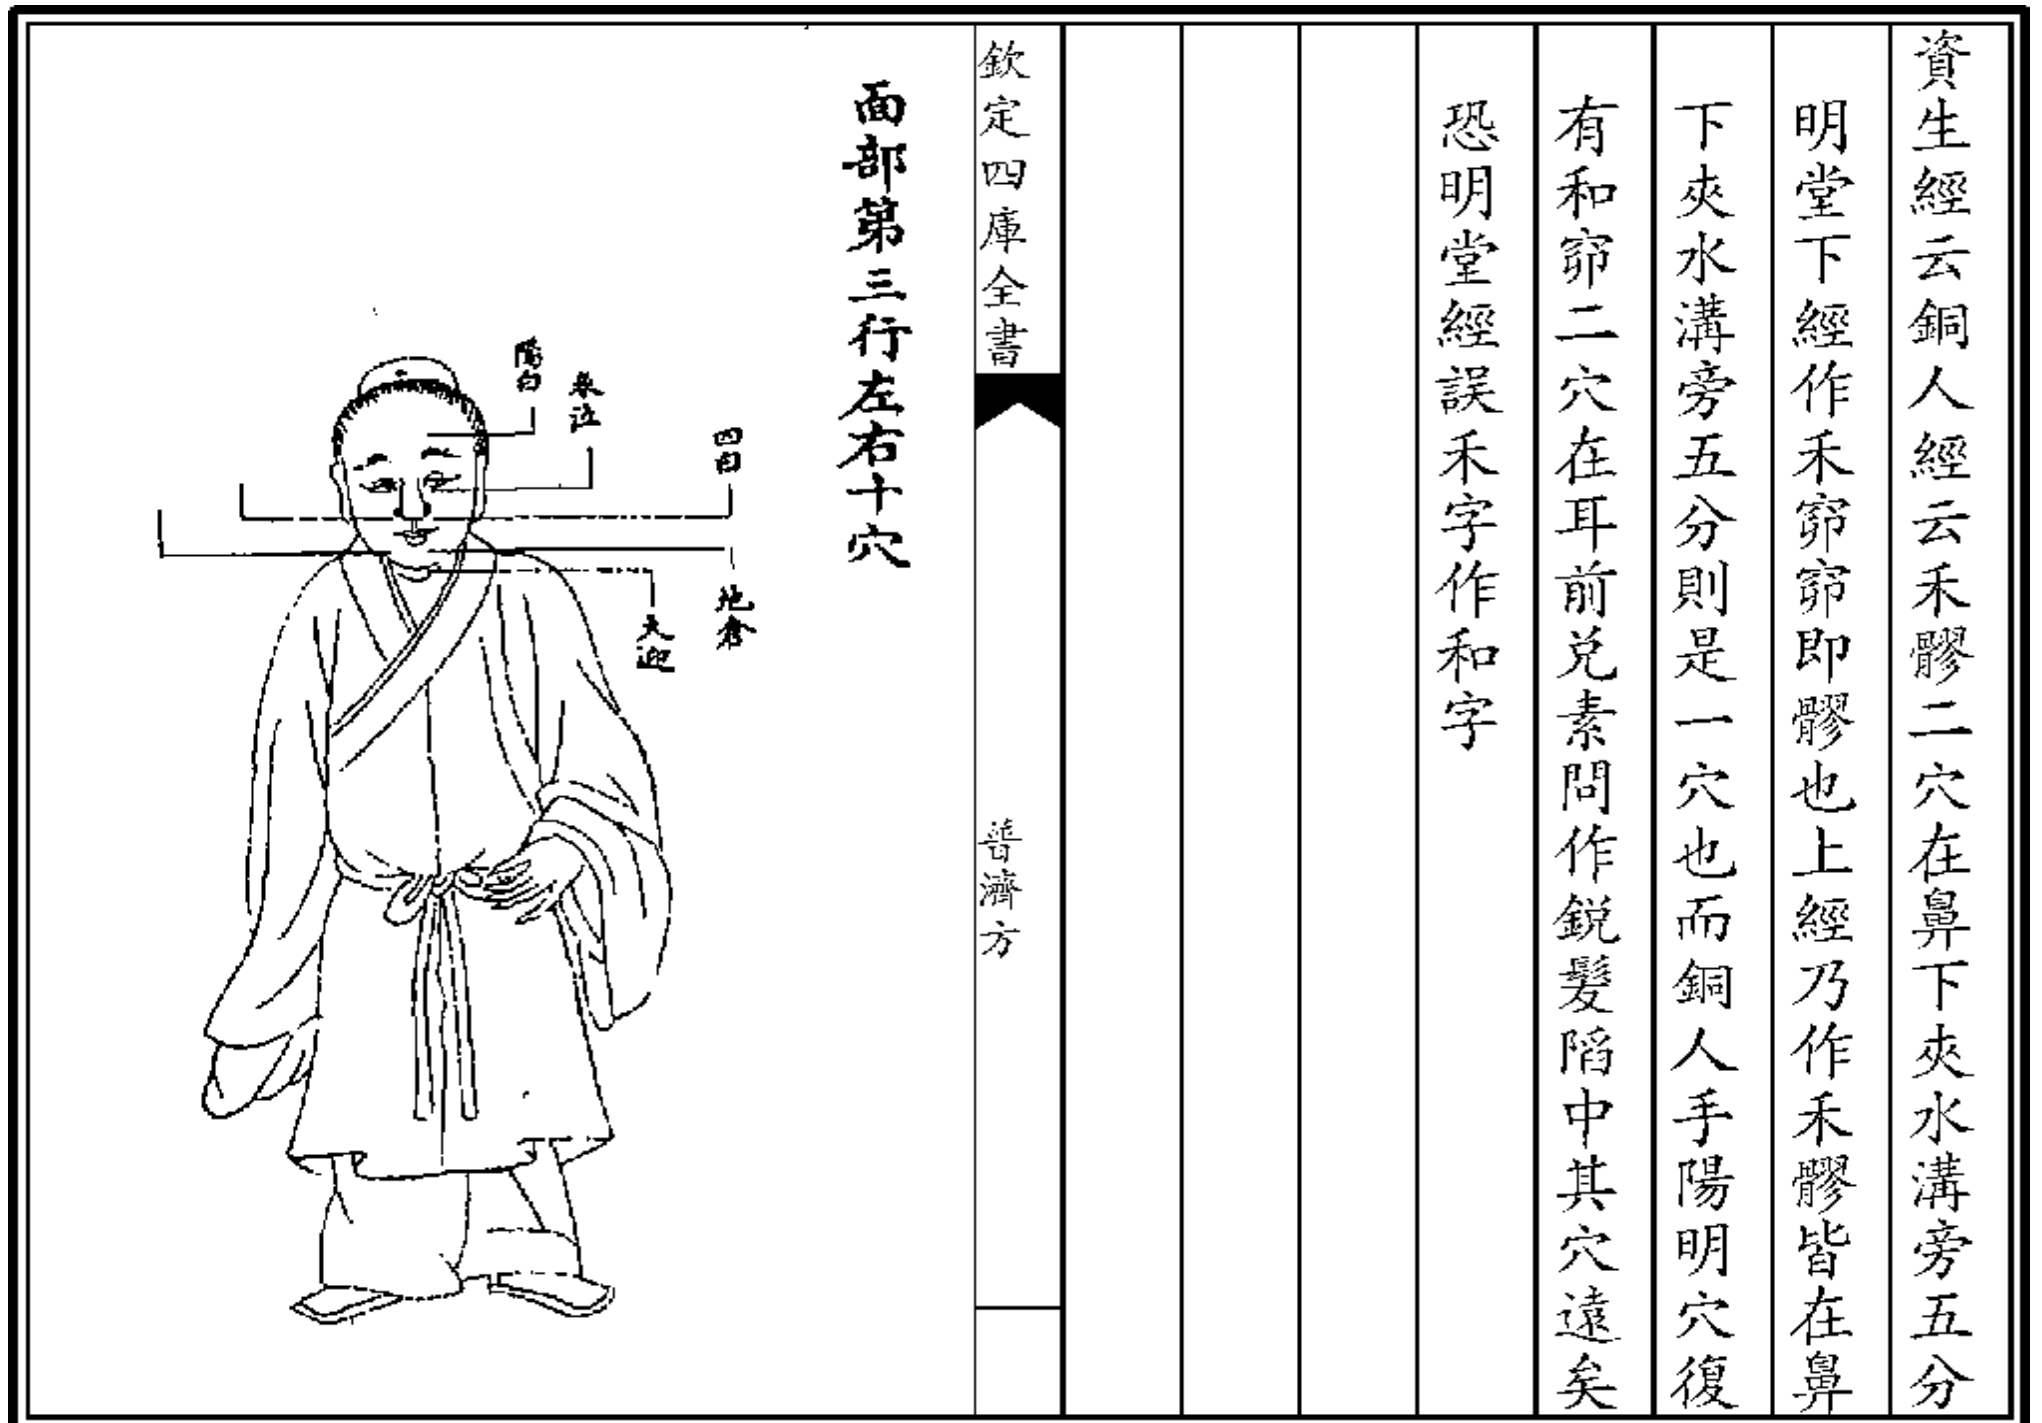 資生經云銅人經云禾髎二穴在鼻下夾水溝旁五分
明堂下經作禾窌窌即髎也上經乃作禾髎皆在鼻
下夾水溝旁五分則是一穴也而銅人手陽明穴復
有和窌二穴在耳前兑素問作鋭髮陷中其穴遠矣
恐明堂經誤禾字作和字
欽定四庫全書
普濟方
面部第三行左右十穴
四白
地倉
大迎
承泣
陽白